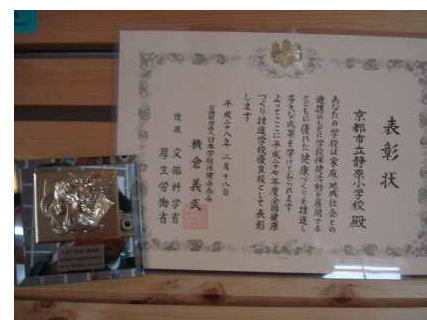 表彰状
京都市立静原小学校 殿
あなたの学校は家庭・地域社会との
連携のもとに学校保健活動を展開する
とともに優れた健康づくりを推進し
多大な成果を挙げておられます
よってここに平成二十七年度全国健康
づくり推進学校優良校として表彰
します
平成二十八年 二月十八日
公益財団法人日本学校保健会会長
横倉義武
後援 文部科学省
厚生労働省